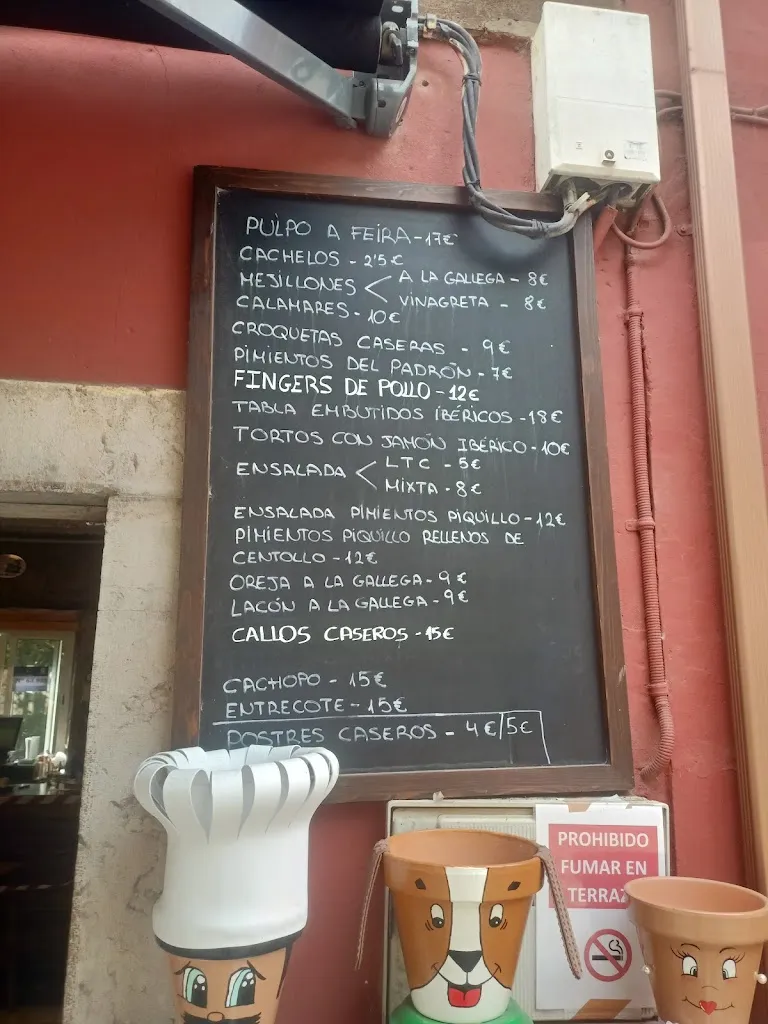 PULPO A FEIRA - 17€
CACHELOS - 2'5€
MEJILLONES < A LA GALLEGA - 8€
VINAGRETA - 8€
CALAMARES - 10€
CROQUETAS CASERAS - 9€
PIMIENTOS DEL PADRÓN - 7€
FINGERS DE POLLO - 12€
TABLA EMBUTIDOS IBÉRICOS - 18€
TORTOS CON JAMÓN IBÉRICO - 10€
ENSALADA < LTC - 5€
MIXTA - 8€
ENSALADA PIMIENTOS PIQUILLO - 12€
PIMIENTOS PIQUILLO RELLENOS DE
CENTOLLO - 12€
OREJA A LA GALLEGA - 9€
LACÓN A LA GALLEGA - 9€
CALLOS CASEROS - 15€
CACHOPO - 15€
ENTRECOTE - 15€
POSTRES CASEROS - 4€/5€
PROHIBIDO
FUMAR EN
TERRAZ